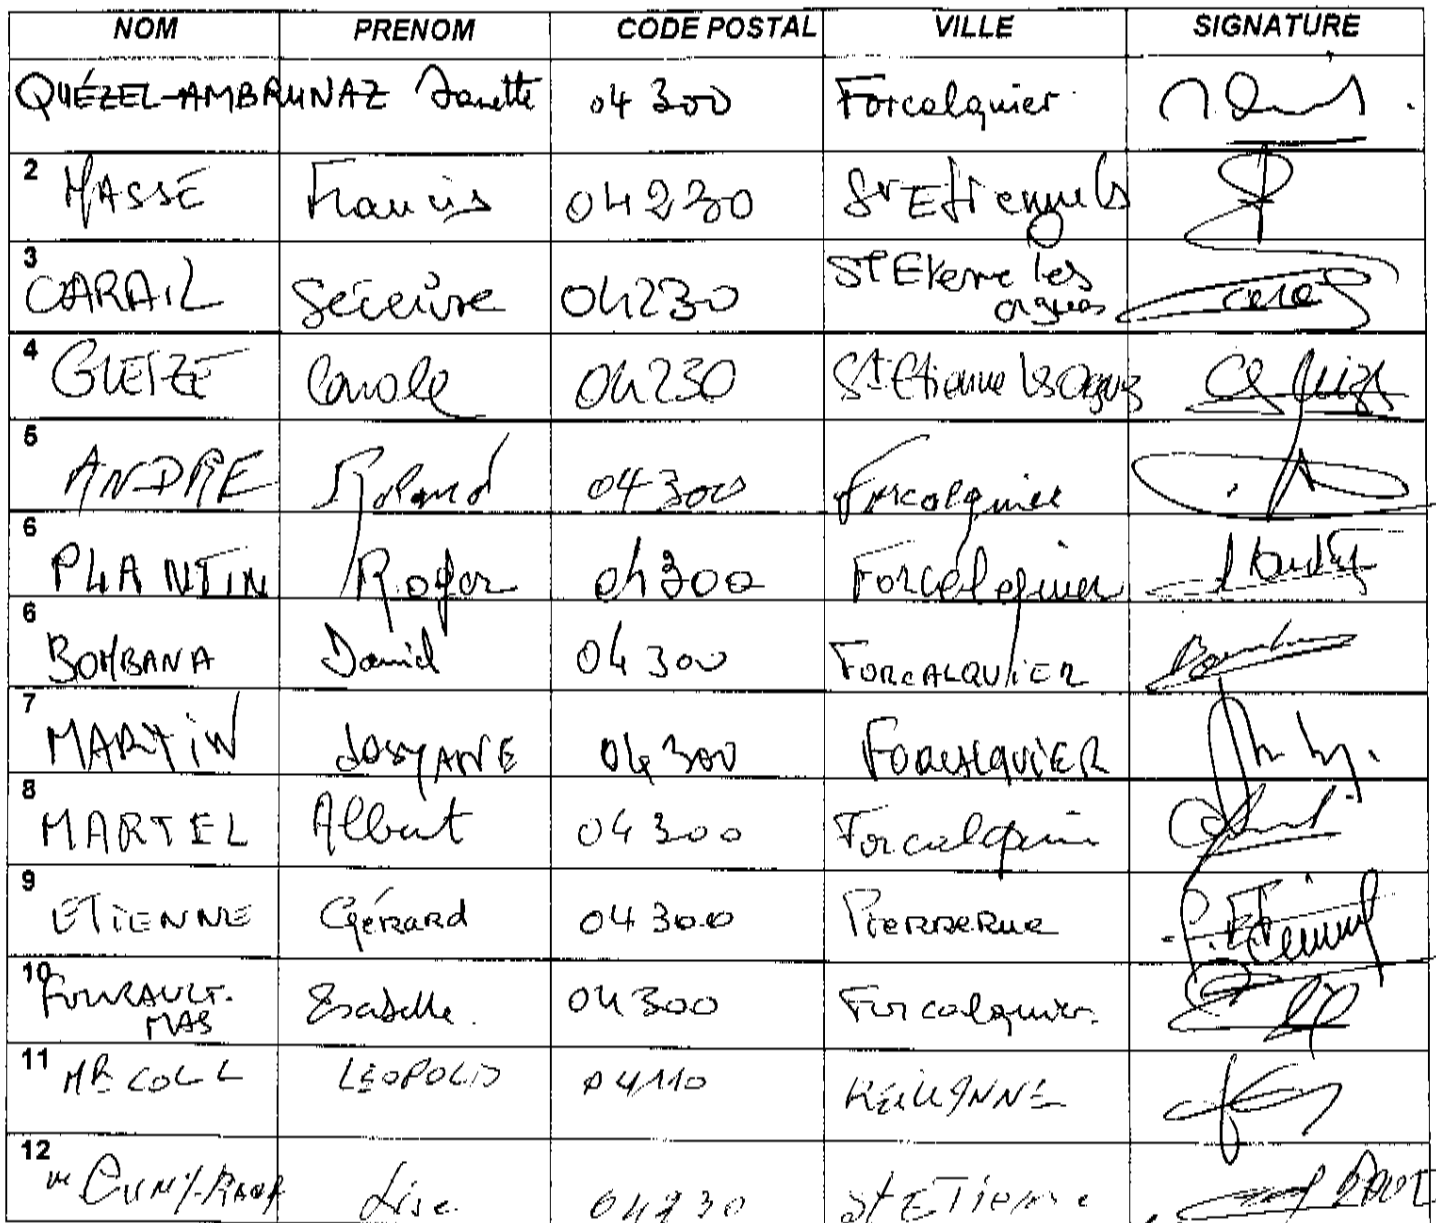 NOM PRENOM CODE POSTAL VILLE SIGNATURE
QUÉZEL-AMBRUNAZ 04 300 Forcalquier
2 MASSE Francis 04230 St Etienne ls
3 CARAIL 04230 St Etienne les
orgues
4 GLEIZE Carole 04230 St Etienne ls Orgues
5 ANDRE Roland 04300 Forcalquier
6 PLANTIN Roger 04300 Forcalquier
6 BOMBANA Daniel 04 300 FORCALQUIER
7 MARTIN JOSYANE 04 300 FORCALQUIER
8 MARTEL Albert 04 300 Forcalquier
9 ETIENNE Gérard 04 300 Pierrerue
10 Isabelle 04300 Forcalquier
MAS
11 MR COLL LEOPOLD 04110 REILLANNE
12 Lise 04230 St ETienne